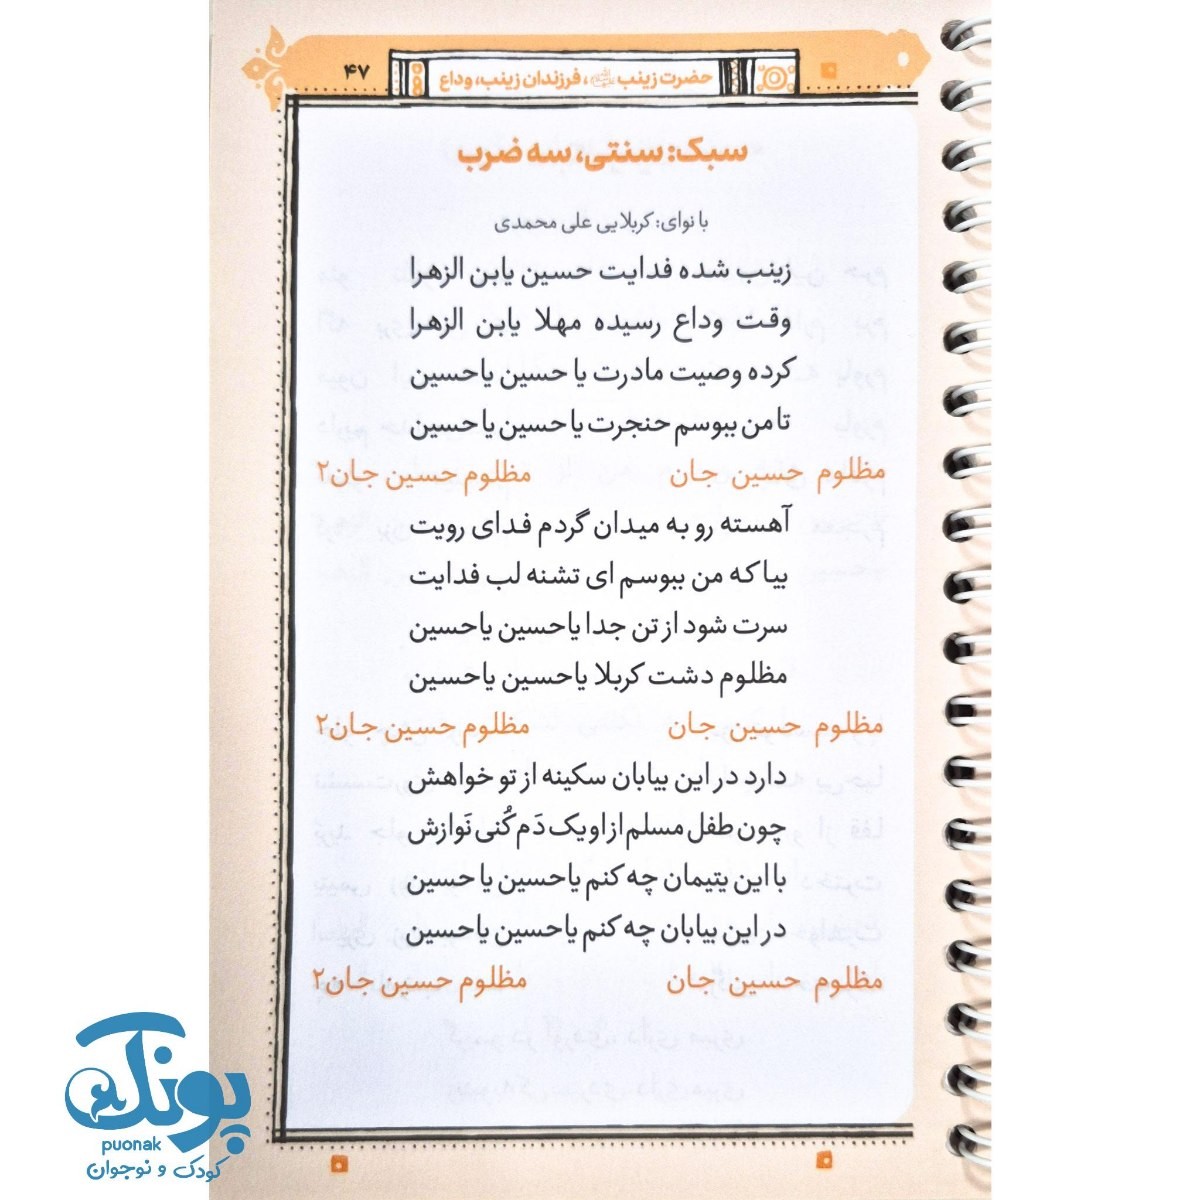 ۴۷
حضرت زینب، فرزندان زینب، وداع
سبک: سنتی، سه ضرب
با نوای: کربلایی علی محمدی
زینب شده فدایت حسین یابن الزهرا
وقت وداع رسیده مهلا یابن الزهرا
کرده وصیت مادرت یا حسین یاحسین
تا من ببوسم حنجرت یا حسین یا حسین
مظلوم حسین جان مظلوم حسین جان۲
آهسته رو به میدان گردم فدای رویت
بیا که من ببوسم ای تشنه لب فدایت
سرت شود از تن جدا یاحسین یاحسین
مظلوم دشت کربلا یاحسین یاحسین
مظلوم حسین جان مظلوم حسین جان۲
دارد در این بیابان سکینه از تو خواهش
چون طفل مسلم از او یک دَم کُنی نَوازش
با این یتیمان چه کنم یاحسین یا حسین
در این بیابان چه کنم یاحسین یاحسین
مظلوم حسین جان مظلوم حسین جان۲
پونک
puonak
کودک و نوجوان